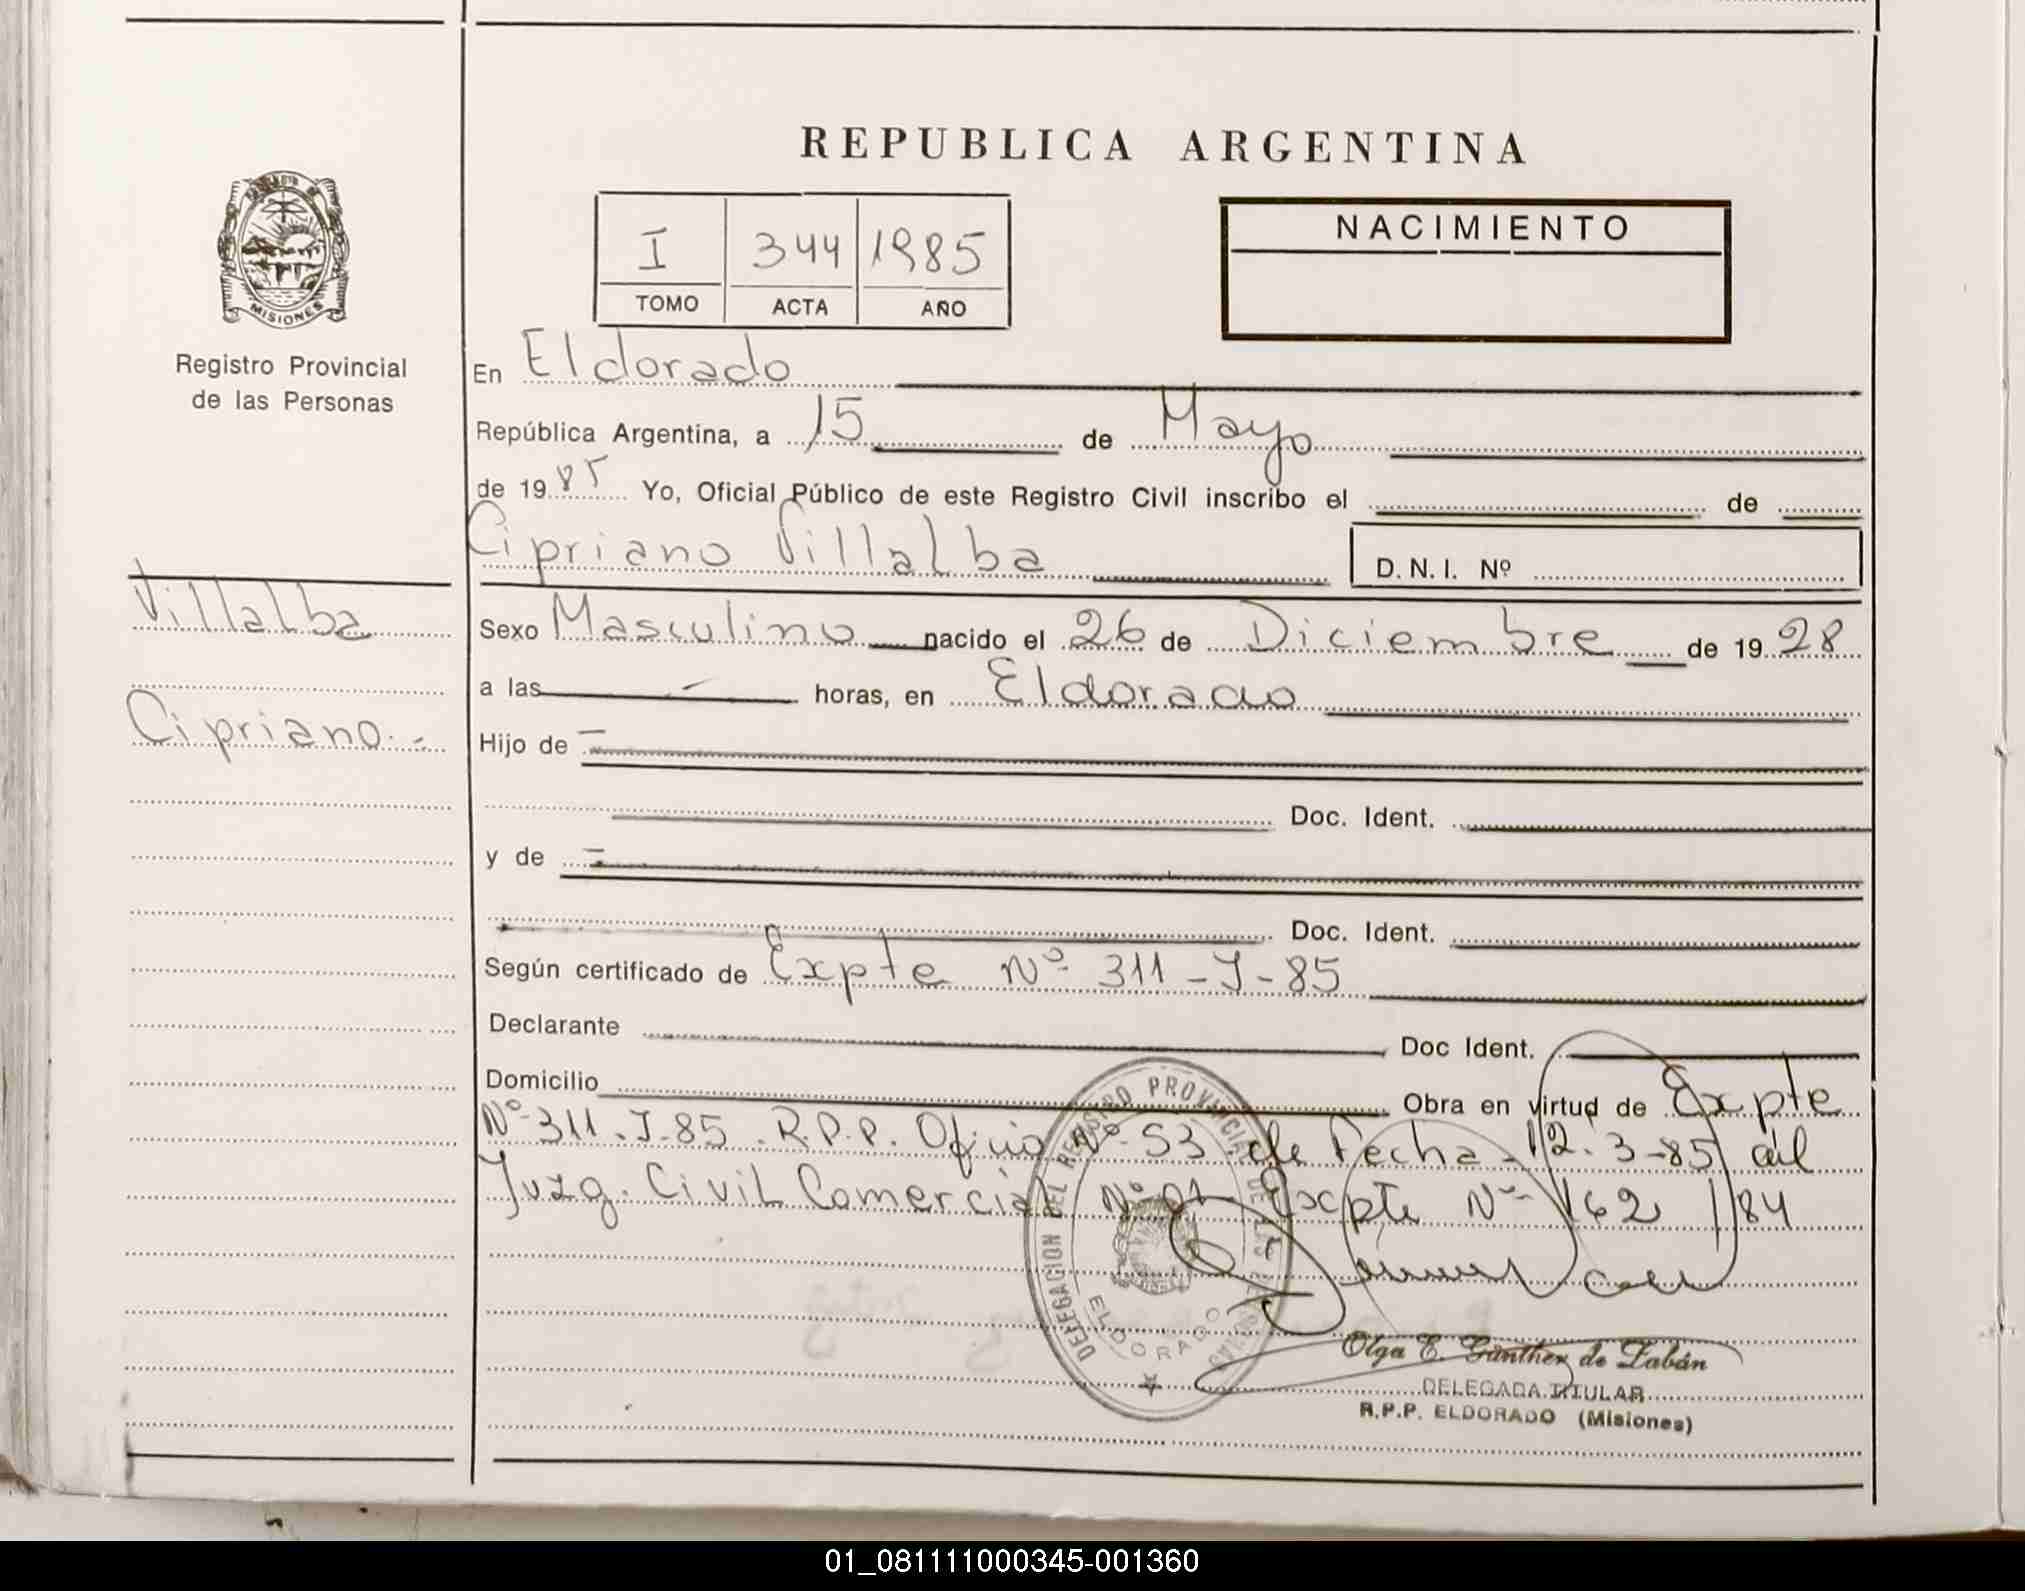 REPUBLICA ARGENTINA
MISIONES
Registro Provincial
de las Personas
I 344 1985
TOMO ACTA AÑO
NACIMIENTO
En Eldorado
República Argentina, a 15 de Mayo
de 1985 Yo, Oficial Público de este Registro Civil inscribo el de
Cipriano Villalba D.N.I. Nº
Villalba
Cipriano.-
Sexo Masculino nacido el 26 de Diciembre de 1928
a las horas, en Eldorado
Hijo de
Doc. Ident.
y de
Doc. Ident.
Según certificado de Expte Nº 311-J-85
Declarante Doc Ident.
Domicilio Obra en virtud de Expte
Nº 311.J-85.R.P.P. Oficio Nº 53 de Fecha 12.3-85 del
Juzg. Civil Comercial Nº 01 Expte Nº 162/84
DELEGACION DEL REGISTRO PROVINCIAL DE LAS PERSONAS
ELDORADO
Olga E. Günther de Labán
DELEGADA TITULAR
R.P.P. ELDORADO (Misiones)
01_081111000345-001360